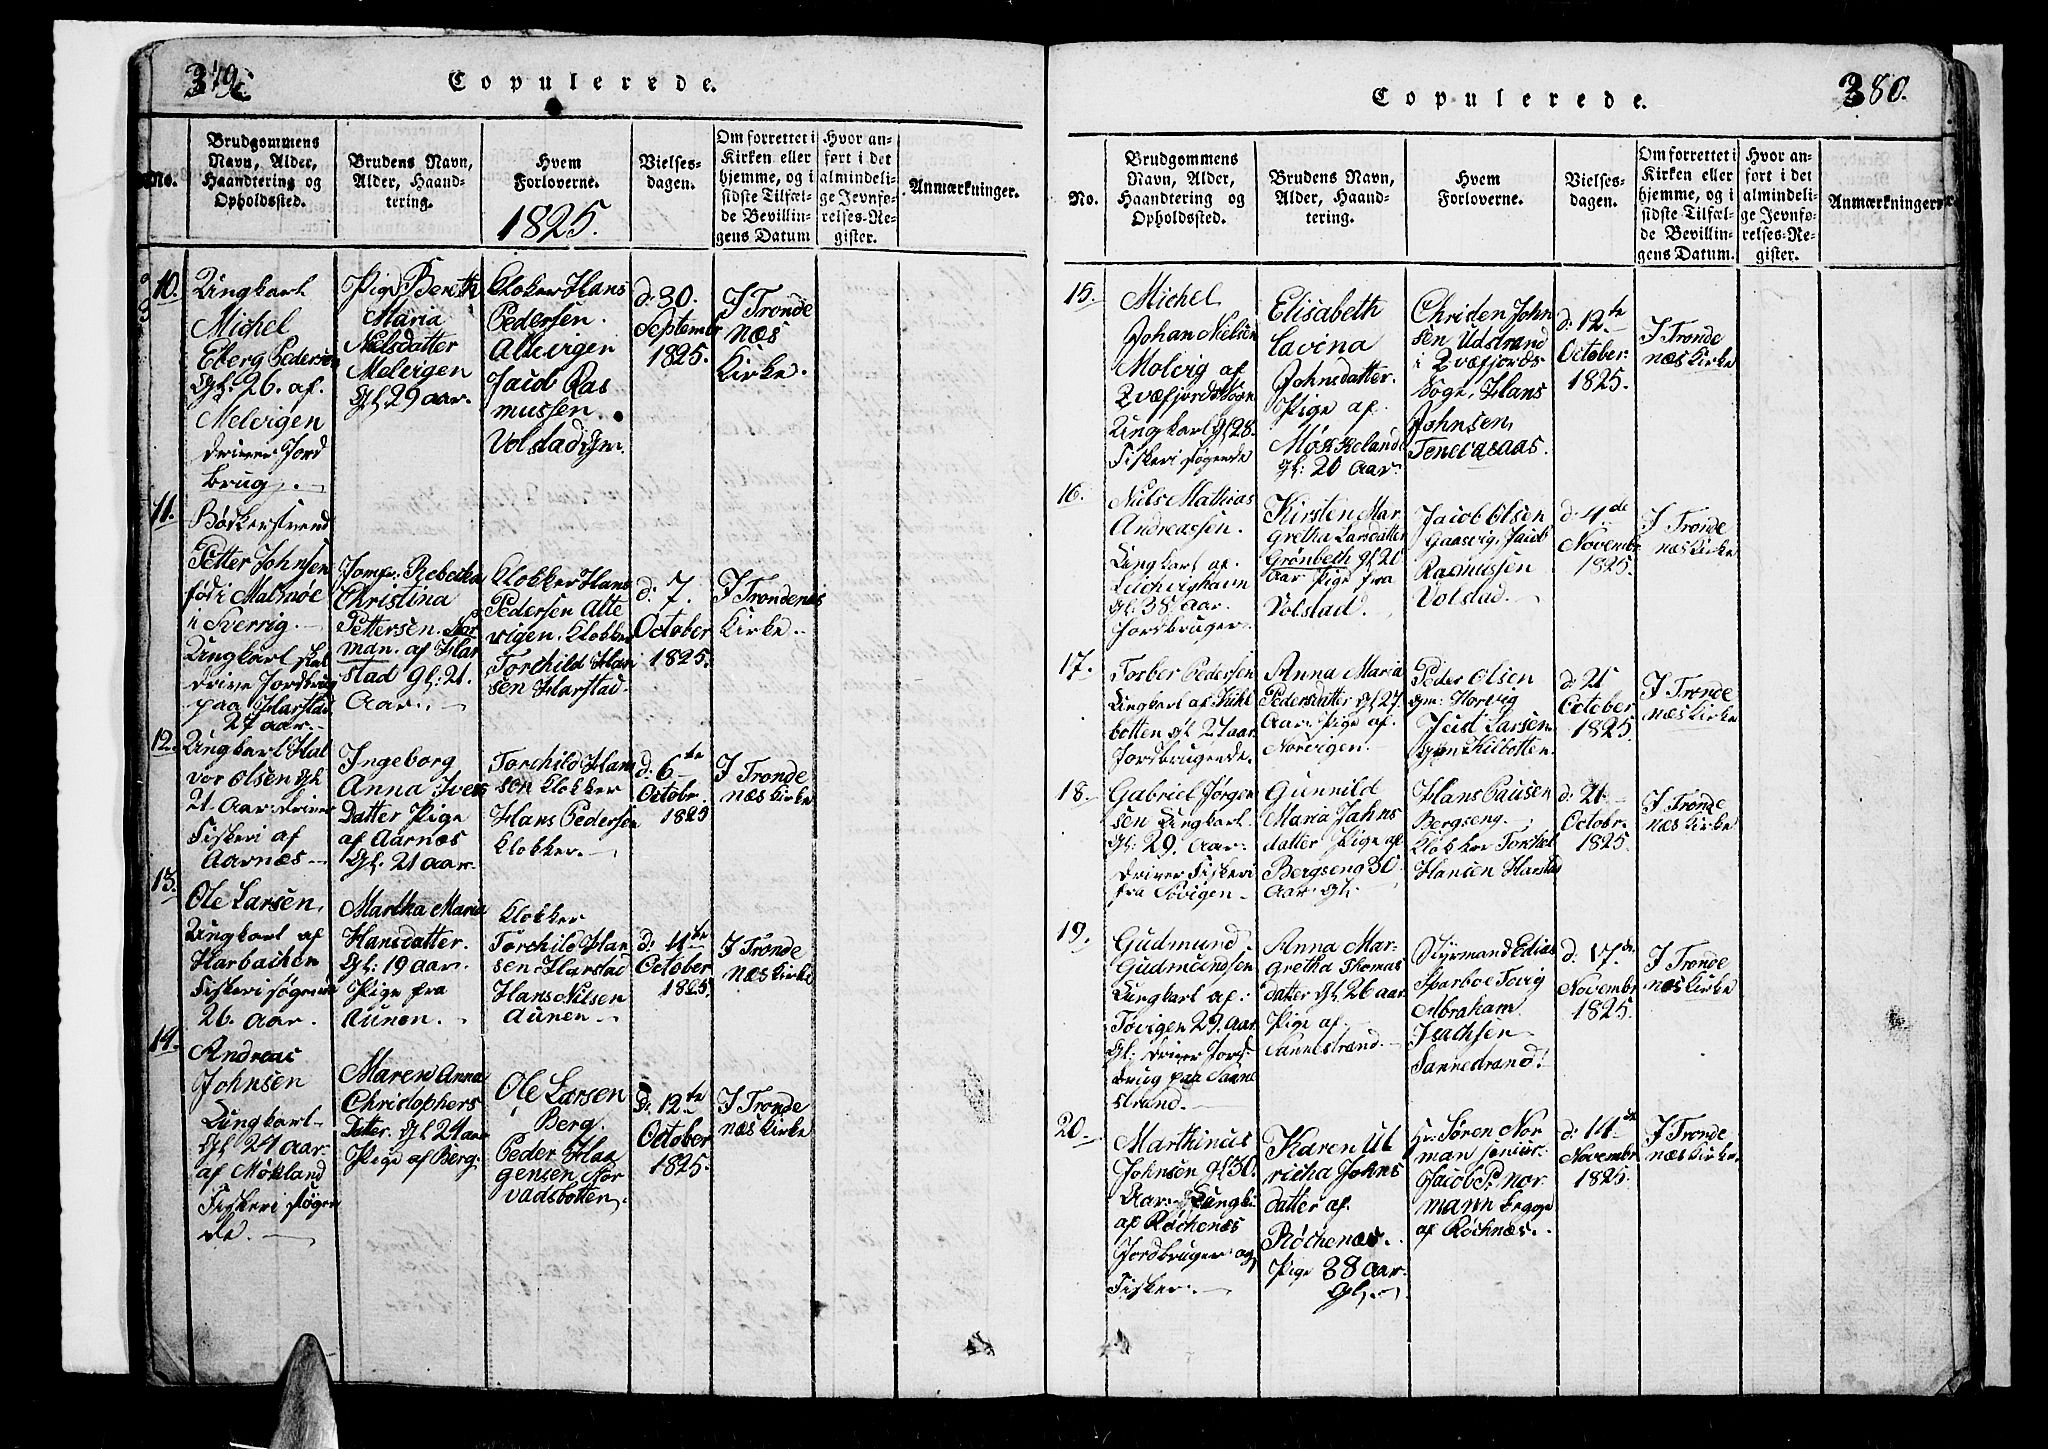 379.
Copulerede.
No.
Brudgommens
Navn, Alder,
Haandtering og
Opholdssted.
Brudens Navn,
Alder, Haand-
tering.
Hvem
Forloverne.
1825.
Vielses-
dagen.
Om forrettet i
Kirken eller
hjemme, og i
sidste Tilfæl-
de Bevillin-
gens Datum
Hvor an-
ført i det
almindeli-
ge Jevnfø-
relses-Re-
gister.
Anmærkninger.
10.
Ungkarl
Michel
Eberg Pedersen
Gl: 26. af.
Melvigen
driver Jord
brug.
Pige Bereth
Maria
Nielsdatter
Melvigen
Gl 29 aar.
Klokker Hans
Pedersen.
Altevigen
Jacob Ras
mussen
Volstad Gm.
d: 30.
September
1825.
I Tronde
næs
Kirke.
11.
Bødkersvend
Petter Johnsen
fød i Malmøe
i Sverrig.
Ungkarl skal
drive Jordbrug
paa Harstad
27 aar.
Jomfr. Rebecka
Christina
Pettersen. Nor
man. af Har
stad Gl: 21.
Aar.
Klokker Hans
Pedersen Alte
vigen. Klokker
Torchild Han
sen Harstad.
d: 7.
October
1825.
I Trondenæs
Kirke.
12.
Ungkarl Hal
vor Olsen Gl
21. Aar. driver
Fiskeri af
Aarnæs
Ingeborg
Anna Ivers
Datter Pige
af Aarnæs
Gl: 21 aar.
Torchild Han
sen Klokker
Hans Pedersen
Klokker.
d: 6te
Octobr.
1825
I Tronde
næs Kirke
13.
Ole Larsen.
Ungkarl af
Harbachen
Fiskeri søgende
26. Aar.
Martha Maria
Hansdatter.
Gl: 19 aar.
Pige fra
Aunen.
Klokker
Torchild Han
sen Harstad
Hans Nilsen
Aunen
d: 11te
October
1825.
I Trönde
næs Kirke
14.
Andreas
Johnsen
Ungkarl
Gl 24 Aar.
af Møkland
Fiskeri søgen
de.
Maren Anna
Christophers
Dater. Gl 24 aar
Pige af Berg.
Ole Larsen
Berg.
Peder Haa
gensen Stor
vadsbotten.
D: 12te
October
1825.
I Tronde
næs Kirke
380.
Copulerede.
No.
Brudgommens
Navn, Alder,
Haandtering og
Opholdssted.
Brudens Navn,
Alder, Haand-
tering.
Hvem
Forloverne.
Vielses-
dagen.
Om forrettet i
Kirken eller
hjemme, og i
sidste Tilfæl-
de Bevillin-
gens Datum.
Hvor an-
ført i det
almindeli-
ge Jevnfø-
relses-Re-
gister.
Anmærkninger.
15.
Michel
Johan Nielsen
Molvig af
Qvæfjords Sogn
Ungkarl Gl 28.
Fiskeri søgende
Elisabeth
Lavina
Johnsdatter.
Pige af
Møkkeland
Gl: 20 Aar.
Christen John
sen Udstrand
i Qvæfjords
Sogn. Hans
Johnsen
Tenevasaas.
d: 12te
October.
1825.
I Tronde
næs Kirke
16.
Niels Mathias
Andreassen.
Ungkarl af.
Leichvighavn
Gl: 38 Aar.
Jordbruger.
Kirsten Mar
gretha Larsdatter
Grønbech Gl 20
Aar Pige fra
Volstad.
Jacob Olsen
Gaasvig. Jacob
Rasmussen
Volstad.
d: 4de
Novembr
1825.
I Tronde
næs Kirke
17.
Torber Pedersen
Ungkarl af Kihl
botten Gl 27 aar
Jordbrugende.
Anna Maria
Pedersdatter Gl 27.
Aar. Pige af.
Norvigen.
Peder Olsen
Gm: Norvig
Jest Larsen
Gm Kilbotten.
d: 21
October
1825.
I Tronde
næs Kirke
18.
Gabriel Jørgen
sen Ungkarl.
Gl: 29. Aar.
driver Fiskeri
fra Tovigen
Gunnild
Maria Jahns
datter Pige af
Bergseng 30
Aar Gl.
Hans Pausen
Bergseng.
Klokker Torkel
Hansen Harstad
d: 21.
Octobr.
1825.
I Trønde
næs Kirke
19.
Gudmund
Gudmundsen
Ungkarl af:
Tøvigen 29. aar
Gl: driver Jord
brug paa Sanne
strand.
Anna Mar-
gretha Thomas
datter Gl 26 aar
Pige af
Sannestrand.
Styrmand Edias
Sparboe Tovig
Abraham
Isachsen
Sannestrand!
d: 17de
Novembr
1825.
I Tronde
næs Kirke
20.
Marthinus
Johnsen Gl 30.
Aar. Ungk:
af Røchenæs
Jordbruger og
Fisker.
Karen Ul
richa Johns
datter af.
Røchenæs.
Pige 38 aar.
Gl.
Hr: Søren Nor
man senior.
Jacob P: Nor
mann begge
af Røchnæs.
d: 14de
Novembr
1825.
I Tronde
næs Kirke.